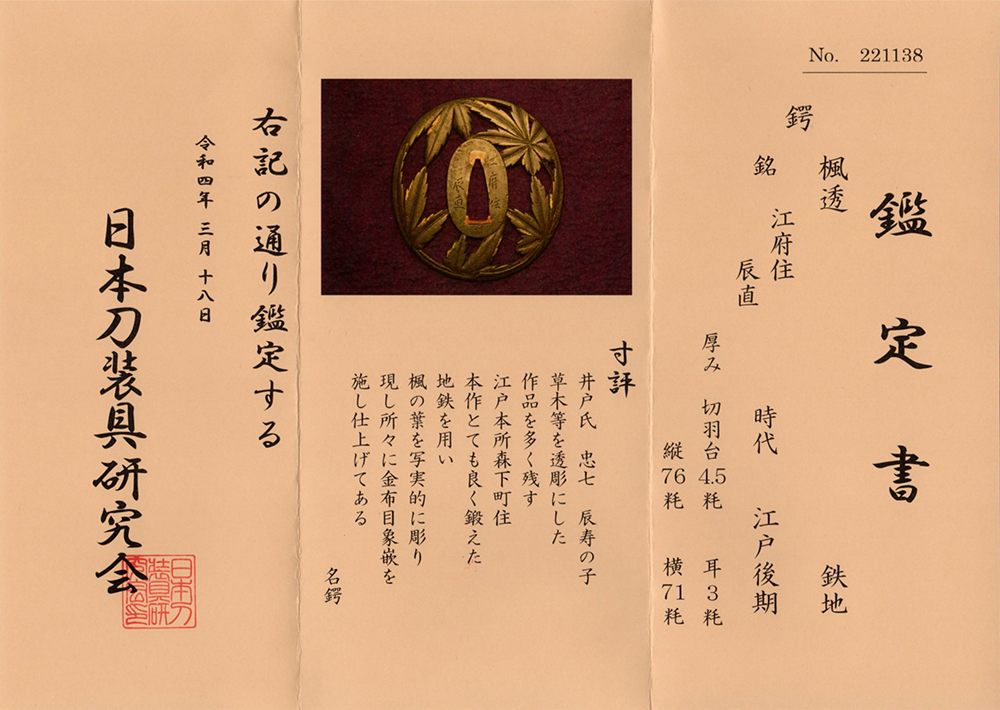 No. 221138
鑑定書
楓透
鉄地
鍔
銘
江府住
辰直
時代 江戸後期
厚み 切羽台 4.5 粍 耳 3 粍
縦 76 粍 横 71 粍
江府住
辰直
寸評
井戸氏 忠七 辰寿の子
草木等を透彫にした
作品を多く残す
江戸本所森下町住
本作とても良く鍛えた
地鉄を用い
楓の葉を写実的に彫り
現し所々に金布目象嵌を
施し仕上げてある
名鍔
右記の通り鑑定する
令和四年 三月 十八日
日本刀装具研究会
日本刀
装具研
究会印